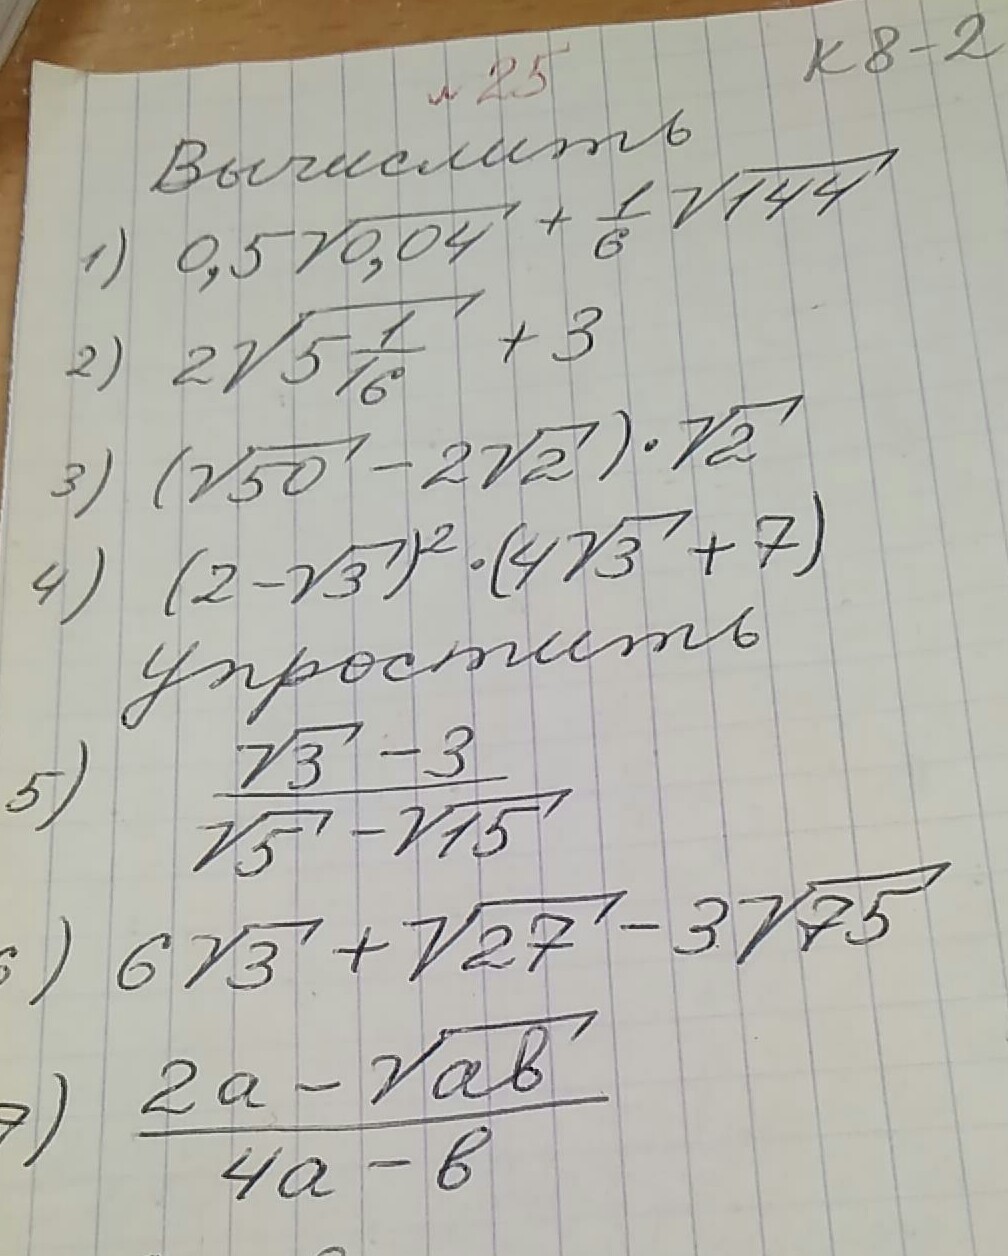 № 25
К 8-2
Вычислить
1) 0,5√0,04 + 1/6 √144
2) 2√(5 1/16) + 3
3) (√50 - 2√2)·√2
4) (2-√3)²·(4√3 + 7)
Упростить
5) (√3 - 3)/(√5 - √15)
6) 6√3 + √27 - 3√75
7) (2a - √ab)/(4a - b)